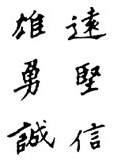 雄遠
勇堅
誠信